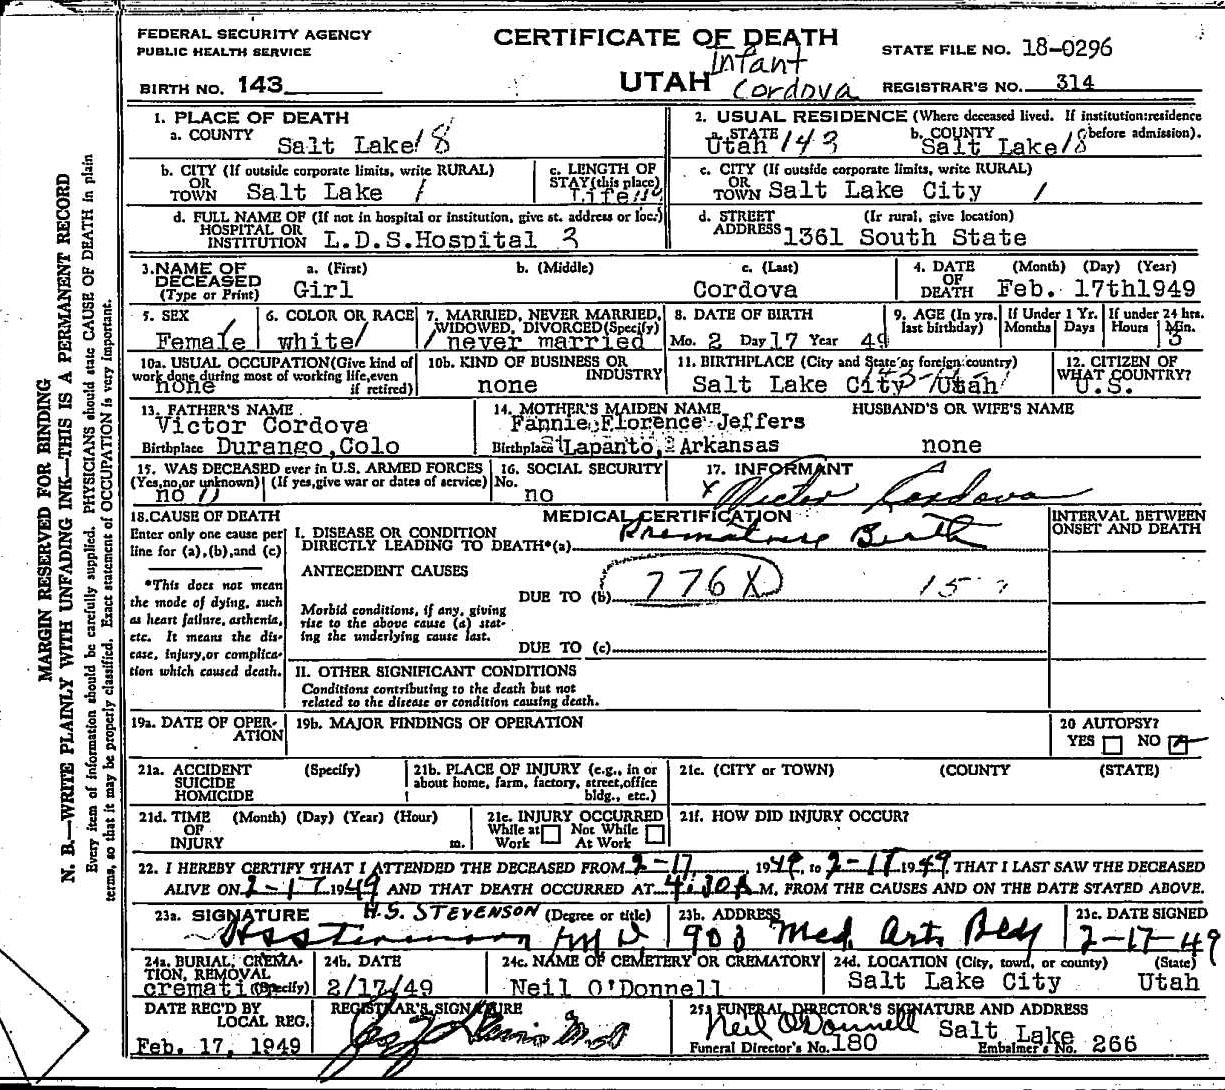 FEDERAL SECURITY AGENCY
PUBLIC HEALTH SERVICE
CERTIFICATE OF DEATH
STATE FILE NO. 18-0296
BIRTH NO. 143
UTAH
Infant
Cordova
REGISTRAR'S NO. 314
1. PLACE OF DEATH
a. COUNTY
Salt Lake 18
2. USUAL RESIDENCE (Where deceased lived. If institution:residence before admission).
a. STATE
Utah 143
b. COUNTY
Salt Lake 18
b. CITY (If outside corporate limits, write RURAL)
OR
TOWN Salt Lake 1
c. LENGTH OF
STAY (this place)
Life
c. CITY (If outside corporate limits, write RURAL)
OR
TOWN Salt Lake City 1
d. FULL NAME OF (If not in hospital or institution, give st. address or loc.)
HOSPITAL OR
INSTITUTION L.D.S.Hospital 3
d. STREET (Ir rural, give location)
ADDRESS 1361 South State
3. NAME OF DECEASED
(Type or Print)
a. (First)
Girl
b. (Middle)
c. (Last)
Cordova
4. DATE OF DEATH
(Month) (Day) (Year)
Feb. 17th1949
5. SEX
Female
6. COLOR OR RACE
white
7. MARRIED, NEVER MARRIED,
WIDOWED, DIVORCED(Specify)
never married
8. DATE OF BIRTH
Mo. 2 Day 17 Year 49
9. AGE (In yrs. last birthday)
If Under 1 Yr.
Months Days
If under 24 hrs.
Hours Min.
3
10a. USUAL OCCUPATION(Give kind of
work done during most of working life,even
if retired)
none
10b. KIND OF BUSINESS OR
INDUSTRY
none
11. BIRTHPLACE (City and State or foreign country)
Salt Lake City Utah
12. CITIZEN OF
WHAT COUNTRY?
U.S.
13. FATHER'S NAME
Victor Cordova
Birthplace Durango,Colo
14. MOTHER'S MAIDEN NAME
Fannie Florence Jeffers
Birthplace Lapanto, Arkansas
HUSBAND'S OR WIFE'S NAME
none
15. WAS DECEASED ever in U.S. ARMED FORCES
(Yes,no,or unknown) (If yes,give war or dates of service)
no
16. SOCIAL SECURITY
No.
no
17. INFORMANT
x Victor Cordova
18. CAUSE OF DEATH
Enter only one cause per
line for (a),(b),and (c)
*This does not mean
the mode of dying, such
as heart failure, asthenia,
etc. It means the dis-
ease, injury,or complica-
tion which caused death.
MEDICAL CERTIFICATION
INTERVAL BETWEEN
ONSET AND DEATH
I. DISEASE OR CONDITION
DIRECTLY LEADING TO DEATH*(a) Premature Birth
ANTECEDENT CAUSES
DUE TO (b) 776X 15
Morbid conditions, if any, giving
rise to the above cause (a) stat-
ing the underlying cause last.
DUE TO (c)
II. OTHER SIGNIFICANT CONDITIONS
Conditions contributing to the death but not
related to the disease or condition causing death.
19a. DATE OF OPER-
ATION
19b. MAJOR FINDINGS OF OPERATION
20 AUTOPSY?
YES NO
21a. ACCIDENT
SUICIDE
HOMICIDE
(Specify)
21b. PLACE OF INJURY (e.g., in or
about home, farm, factory, street,office
bldg., etc.)
21c. (CITY or TOWN) (COUNTY) (STATE)
21d. TIME (Month) (Day) (Year) (Hour)
OF
INJURY m.
21e. INJURY OCCURRED
While at Work Not While At Work
21f. HOW DID INJURY OCCUR?
22. I HEREBY CERTIFY THAT I ATTENDED THE DECEASED FROM 2-17, 1949, to 2-17 1949, THAT I LAST SAW THE DECEASED
ALIVE ON 2-17 1949 AND THAT DEATH OCCURRED AT 4:30A M, FROM THE CAUSES AND ON THE DATE STATED ABOVE.
23a. SIGNATURE H.S. STEVENSON (Degree or title)
HS Stevenson M D
23b. ADDRESS
903 Med. Arts Bldg
23c. DATE SIGNED
2-17-49
24a. BURIAL, CREMA-
TION, REMOVAL
(Specify)
cremation
24b. DATE
2/17/49
24c. NAME OF CEMETERY OR CREMATORY
Neil O'Donnell
24d. LOCATION (City, town, or county) (State)
Salt Lake City Utah
DATE REC'D BY
LOCAL REG.
Feb. 17, 1949
REGISTRAR'S SIGNATURE
25. FUNERAL DIRECTOR'S SIGNATURE AND ADDRESS
Neil O'Donnell Salt Lake
Funeral Director's No. 180 Embalmer's No. 266
MARGIN RESERVED FOR BINDING
N. B.—WRITE PLAINLY WITH UNFADING INK—THIS IS A PERMANENT RECORD
Every item of information should be carefully supplied. PHYSICIANS should state CAUSE OF DEATH in plain
terms, so that it may be properly classified. Exact statement of OCCUPATION is very important.